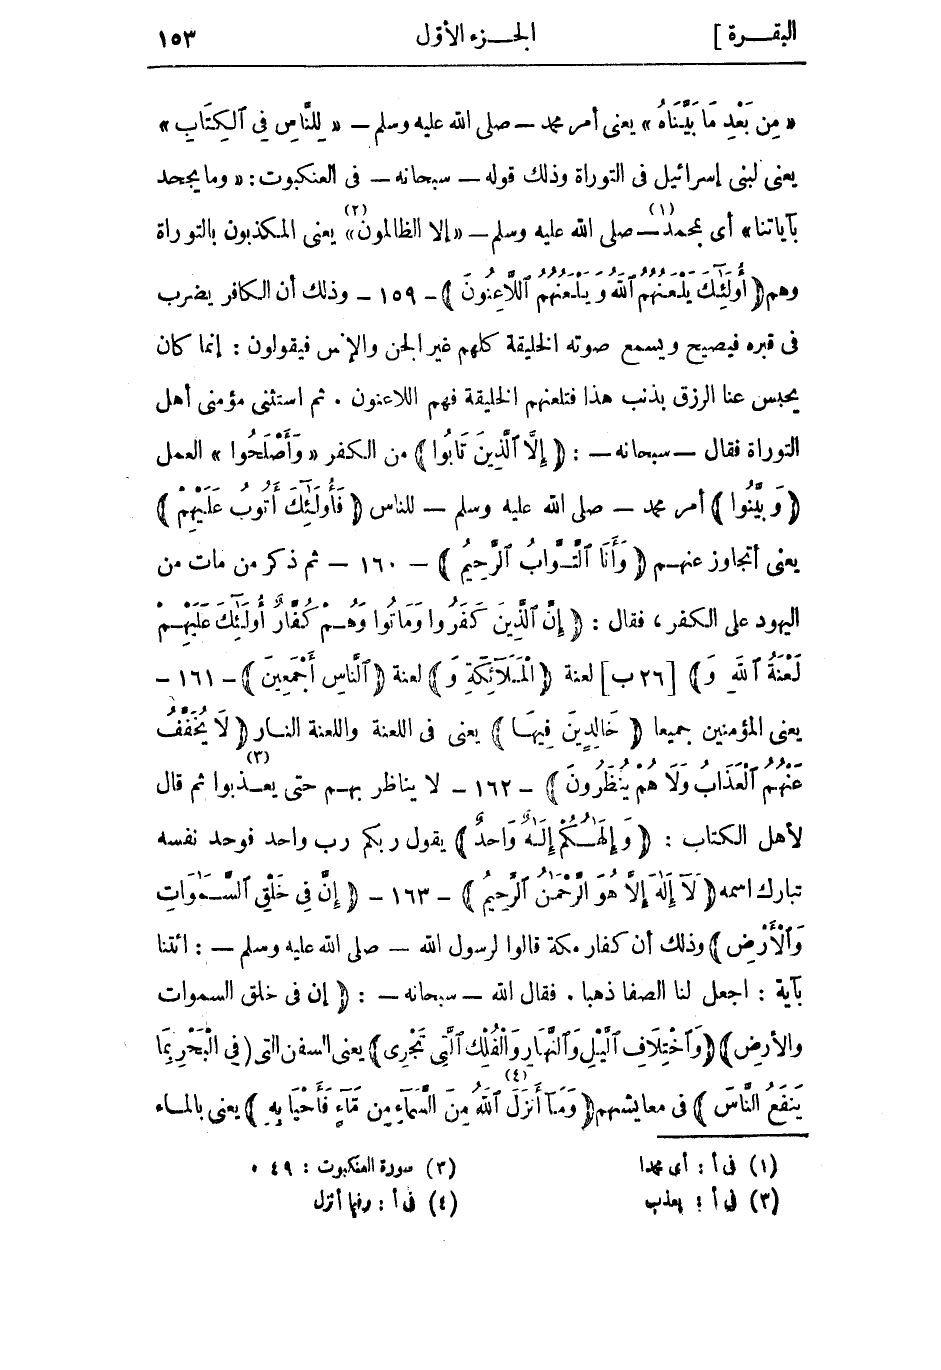 البقـــرة ]
الجـــزء الأول
١٥٣
« مِن بَعْدِ مَا بَيَّنَاهُ » يعنى أمر محمد — صلى الله عليه وسلم — « لِلنَّاسِ فِى ٱلـكِتَابِ »
يعنى لبنى إسرائيل فى التوراة وذلك قوله — سبحانه — فى العنكبوت : « وما يجحد
بآياتنا » أى بمحمد(١) — صلى الله عليه وسلم — « إلا الظالمون(٢) » يعنى المكذبون بالتوراة
وهم ﴿ أُولَٰٓئِكَ يَلْعَنُهُمُ ٱللَّهُ وَيَلْعَنُهُمُ ٱللَّاعِنُونَ ﴾ – ١٥٩ – وذلك أن الكافر يضرب
فى قبره فيصيح ويسمع صوته الخليقة كلهم غير الجن والإنس فيقولون : إنما كان
يحبس عنا الرزق بذنب هذا فتلعنهم الخليقة فهم اللاعنون . ثم استثنى مؤمنى أهل
التوراة فقال — سبحانه — : ﴿ إِلَّا ٱلَّذِينَ تَابُوا ﴾ من الكفر « وَأَصْلَحُوا » العمل
﴿ وَبَيَّنُوا ﴾ أمر محمد — صلى الله عليه وسلم — للناس ﴿ فَأُولَٰٓئِكَ أَتُوبُ عَلَيْهِمْ ﴾
يعنى أتجاوز عنهـم ﴿ وَأَنَا ٱلتَّوَّابُ ٱلرَّحِيمُ ﴾ – ١٦٠ – ثم ذكر من مات من
اليهود على الكفر ، فقال : ﴿ إِنَّ ٱلَّذِينَ كَفَرُوا وَمَاتُوا وَهُـمْ كُفَّارٌ أُولَٰٓئِكَ عَلَيْهِـمْ
لَعْنَةُ ٱللَّهِ وَ ﴾ [ ٢٦ ب ] لعنة ﴿ ٱلْمَـلَآئِكَةِ وَ ﴾ لعنة ﴿ ٱلنَّاسِ أَجْمَعِينَ ﴾ – ١٦١ –
يعنى المؤمنين جميعا ﴿ خَالِدِينَ فِيهَـا ﴾ يعنى فى اللعنة واللعنة النـار ﴿ لَا يُخَفَّفُ
عَنْهُمُ ٱلْعَذَابُ وَلَا هُمْ يُنظَرُونَ ﴾ – ١٦٢ – لا يناظر بهـم حتى يعـذبوا(٣) ثم قال
لأهل الكتاب : ﴿ وَإِلَٰهُـكُمْ إِلَٰـهٌ وَاحِدٌ ﴾ يقول ربكم رب واحد فوحد نفسه
تبارك اسمه ﴿ لَآ إِلَٰهَ إِلَّا هُوَ ٱلرَّحْمَٰنُ ٱلرَّحِيمُ ﴾ – ١٦٣ – ﴿ إِنَّ فِى خَلْقِ ٱلسَّـمَٰوَاتِ
وَٱلْأَرْضِ ﴾ وذلك أن كفار مكة قالوا لرسول الله — صلى الله عليه وسلم — : ائتنا
بآية : اجعل لنا الصفا ذهبا . فقال الله — سبحانه — : ﴿ إن فى خلق السموات
والأرض ﴾ ﴿ وَٱخْتِلَافِ ٱلَّيْلِ وَٱلنَّهَارِ وَٱلْفُلْكِ ٱلَّتِى تَجْرِى ﴾ يعنى السفن التى ﴿ فِى ٱلْبَحْرِ بِمَا
يَنفَعُ ٱلنَّاسَ ﴾ فى معايشهم ﴿ وَمَآ أَنزَلَ(٤) ٱللَّهُ مِنَ ٱلسَّمَآءِ مِن مَّآءٍ فَأَحْيَا بِهِ ﴾ يعنى بالمـاء
(١) فى أ : أى محمدا
(٢) سورة العنكبوت : ٤٩ .
(٣) فى أ : يعذب
(٤) فى أ : وفيها أنزل